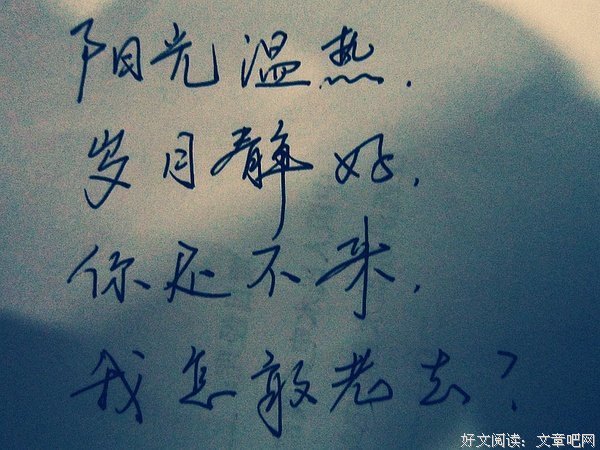 阳光温热.
岁月静好,
你还不来,
我怎敢老去?
好文阅读：文章吧网